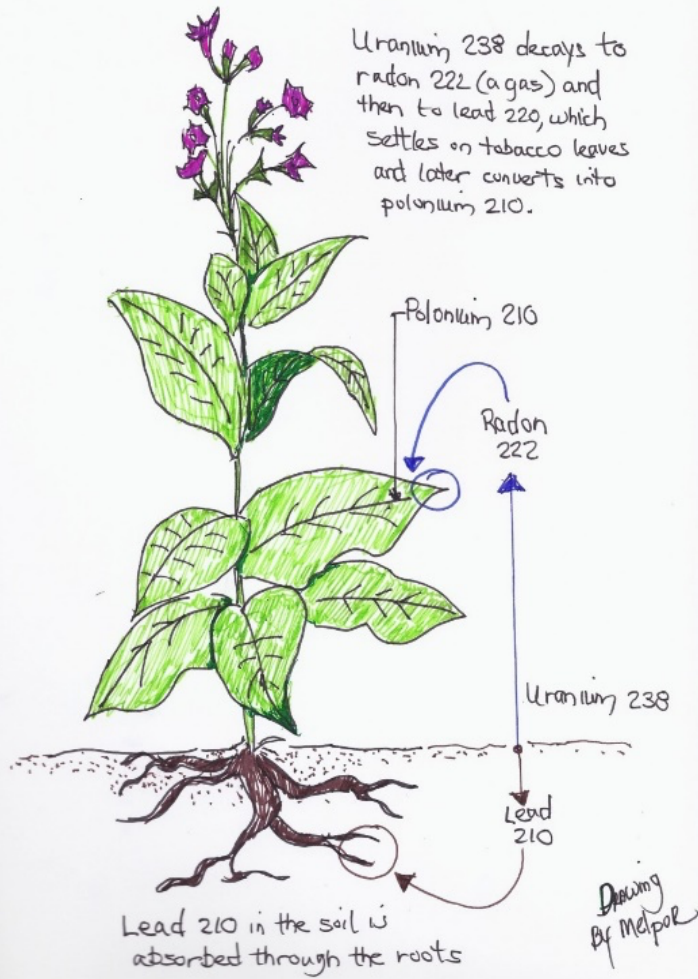 Uranium 238 decays to
radon 222 (a gas) and
then to lead 220, which
settles on tobacco leaves
and later converts into
polonium 210.
Polonium 210
Radon
222
Uranium 238
Lead
210
Lead 210 in the soil is
absorbed through the roots
Drawing
By Melpor